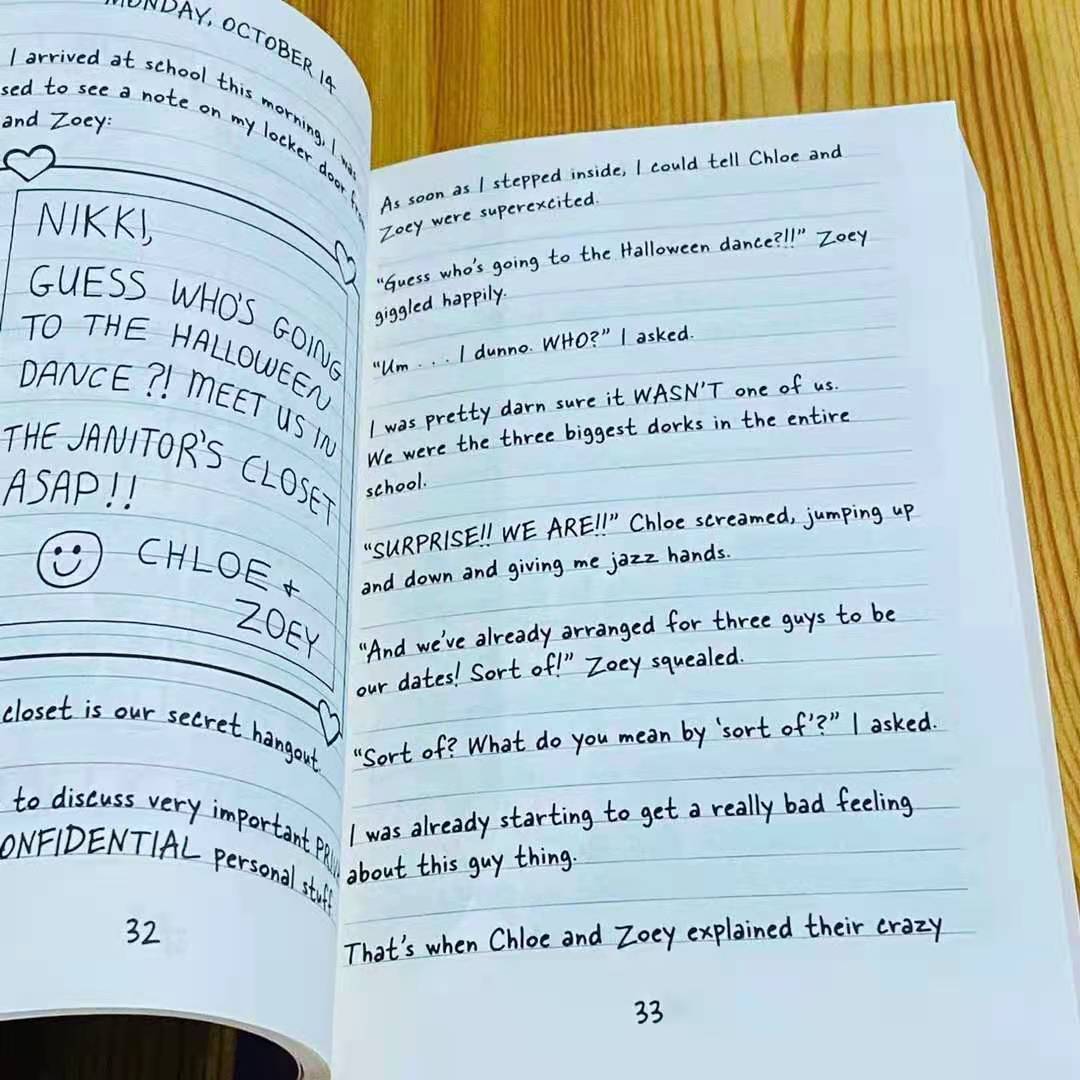 MONDAY, OCTOBER 14
I arrived at school this morning, I was
sed to see a note on my locker door from
and Zoey:
NIKKI,
GUESS WHO'S GOING
TO THE HALLOWEEN
DANCE?! MEET US IN
THE JANITOR'S CLOSET
ASAP!!
CHLOE +
ZOEY
closet is our secret hangout.
to discuss very important
ONFIDENTIAL personal stuff
32
As soon as I stepped inside, I could tell Chloe and
Zoey were superexcited.
"Guess who's going to the Halloween dance?!!" Zoey
giggled happily.
"Um . . . I dunno. WHO?" I asked.
I was pretty darn sure it WASN'T one of us.
We were the three biggest dorks in the entire
school.
"SURPRISE!! WE ARE!!" Chloe screamed, jumping up
and down and giving me jazz hands.
"And we've already arranged for three guys to be
our dates! Sort of!" Zoey squealed.
"Sort of? What do you mean by 'sort of'?" I asked.
I was already starting to get a really bad feeling
about this guy thing.
That's when Chloe and Zoey explained their crazy
33